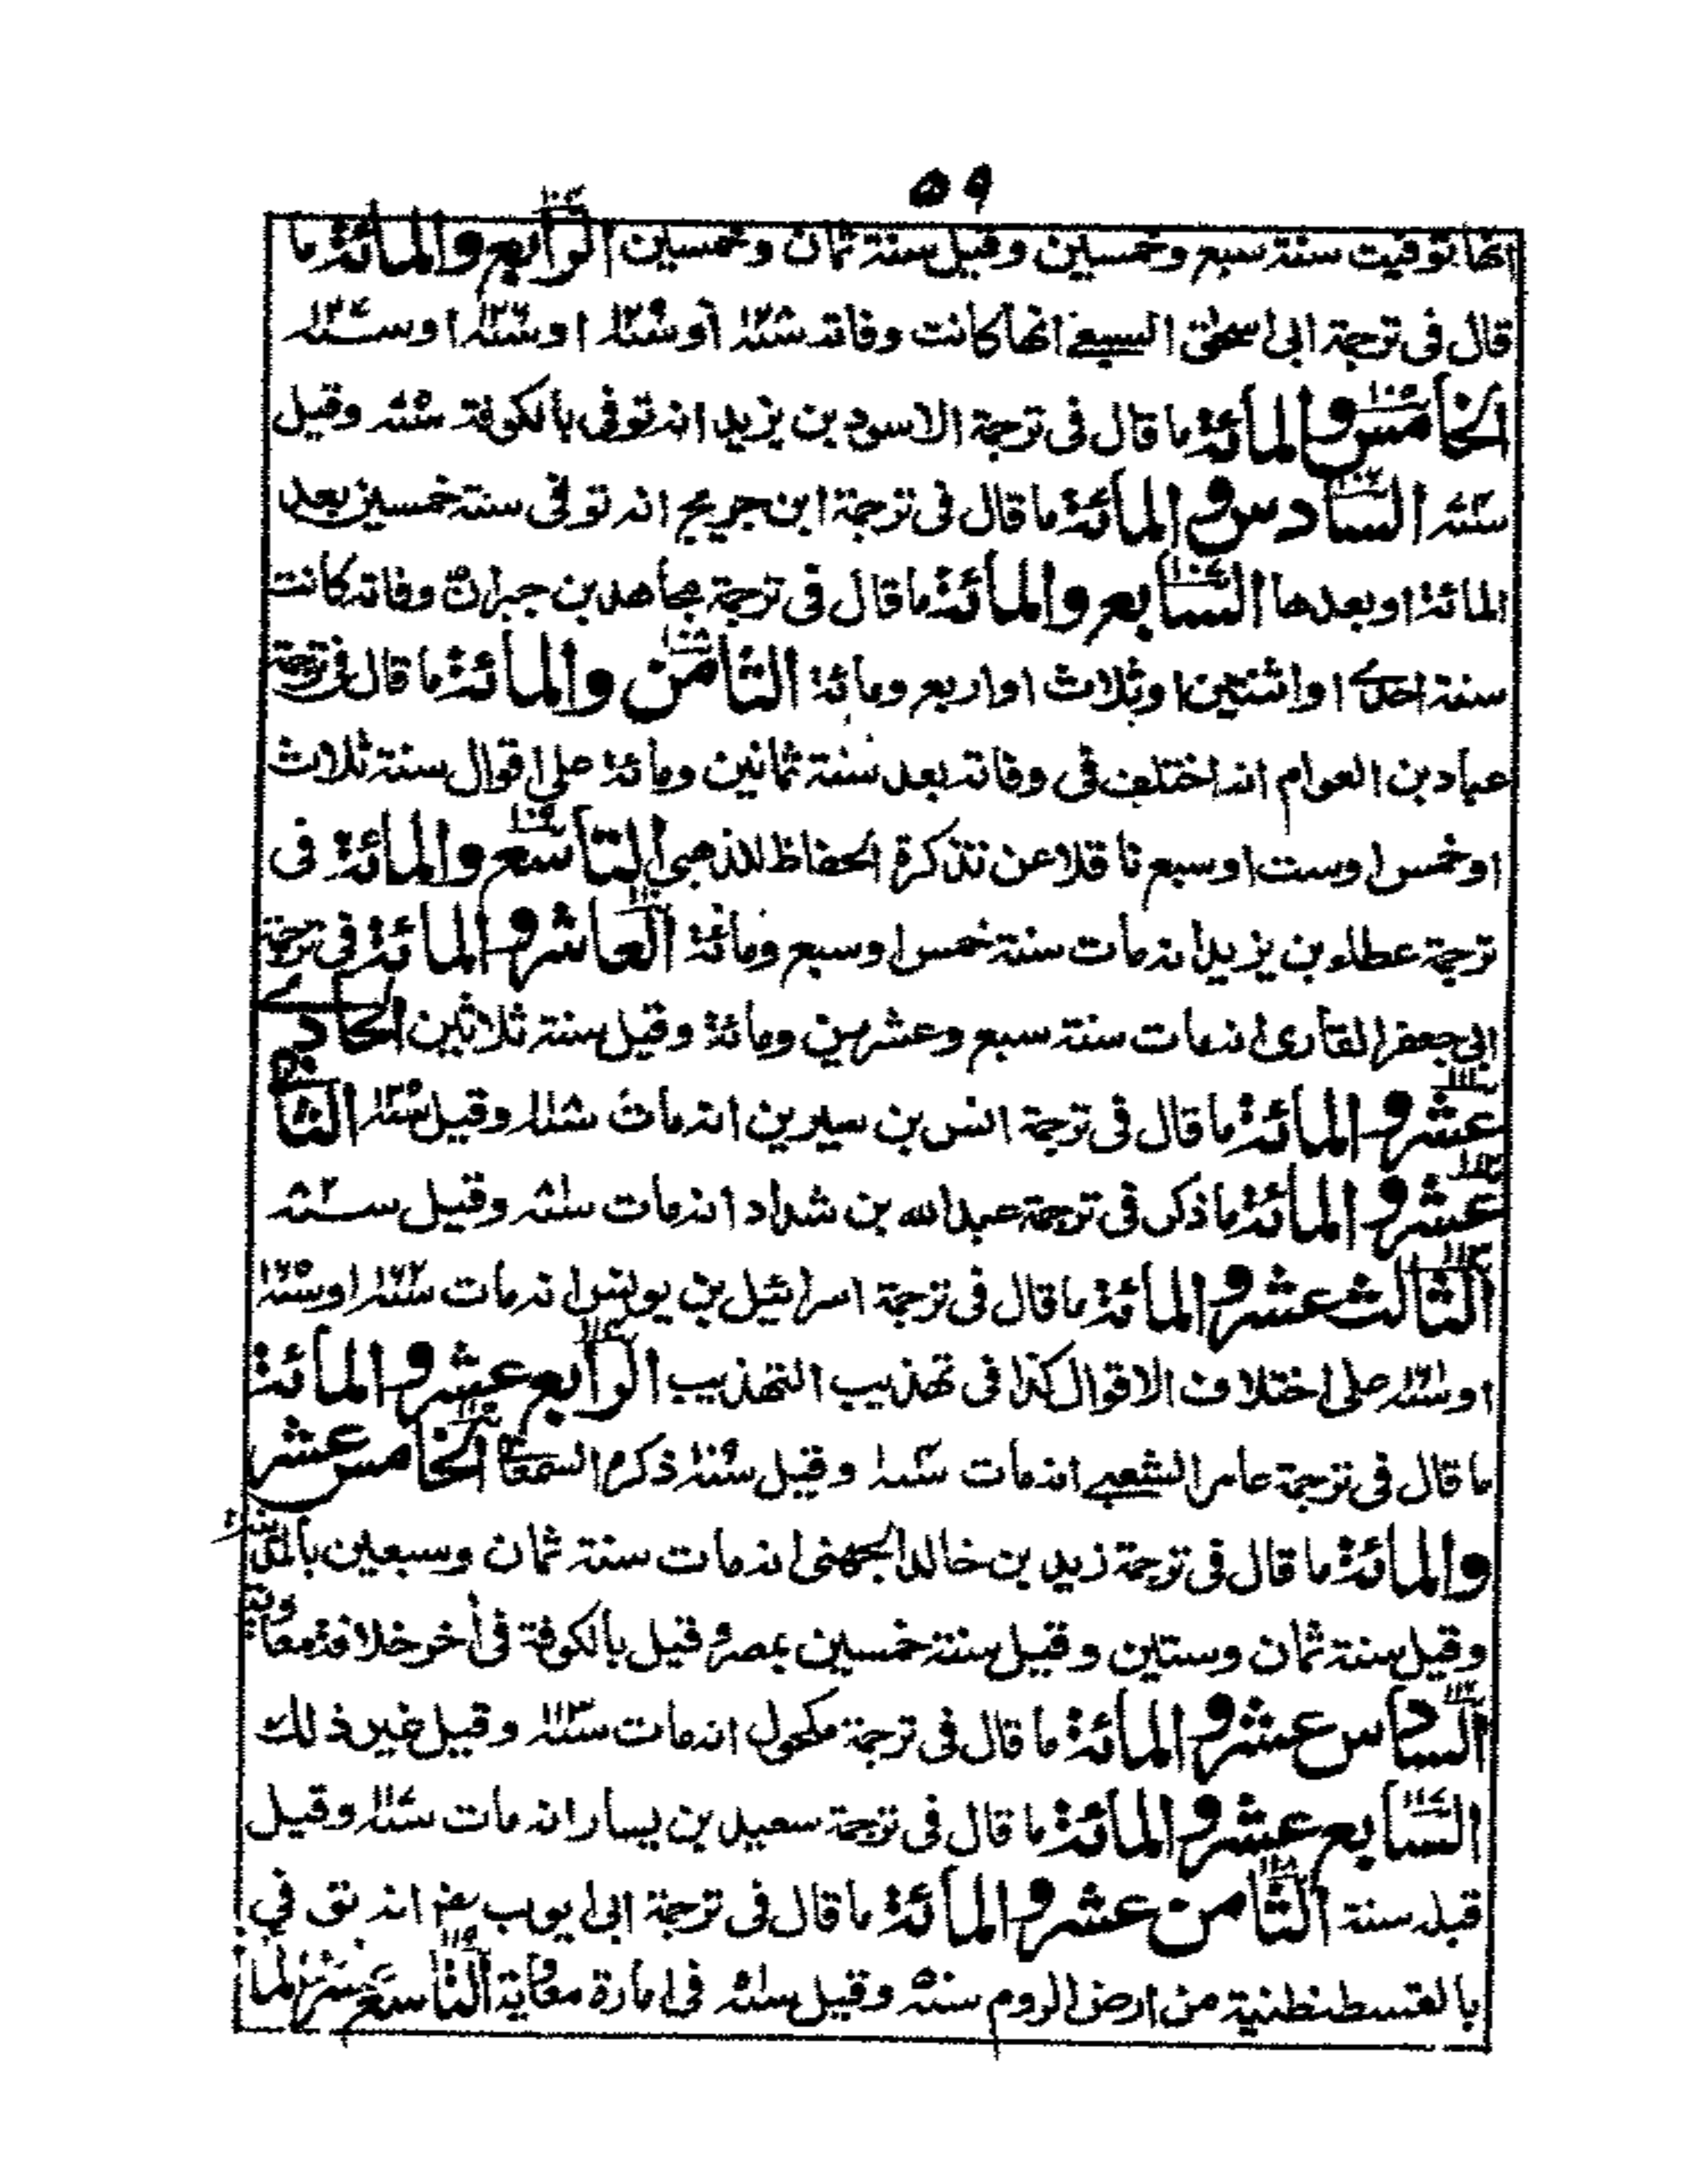 ٥٩
انها توفيت سنة سبع وخمسين وقيل سنة ثمان وخمسين الرابع والمائة ما
قال فى ترجمة ابى اسحٰق السبيعے انها كانت وفاته
الخامس والمائة ما قال فى ترجمة الاسود بن يزيد انه توفى بالكوفة وقيل
السادس والمائة ما قال فى ترجمة ابن جريج انه توفى سنة خمسين بعد
المائة او بعدها السابع والمائة ما قال فى ترجمة مجاهد بن جبران وفاته كانت
سنة احدے او اثنتين او ثلاث او اربع ومائة الثامن والمائة ما قال فى ترجمة
عباد بن العوام انه اختلف فى وفاته بعد سنة ثمانين ومائة على اقوال سنة ثلاث
او خمس او ست او سبع ناقلا عن تذكرة الحفاظ للذهبى التاسع والمائة فى
ترجمة عطاء بن يزيد انه مات سنة خمس او سبع ومائة العاشر والمائة فى ترجمة
ابى جعفر القارى انه مات سنة سبع وعشرين ومائة وقيل سنة ثلاثين الحادے
عشر والمائة ما قال فى ترجمة انس بن سيرين انه مات وقيل الثانى
عشر والمائة ما ذكر فى ترجمة عبد الله بن شداد انه مات وقيل
الثالث عشر والمائة ما قال فى ترجمة اسرائيل بن يونس انه مات
على اختلاف الاقوال كذا فى تهذيب التهذيب الرابع عشر والمائة
ما قال فى ترجمة عامر الشعبے انه مات وقيل ذكره السمعانے الخامس عشر
والمائة ما قال فى ترجمة زيد بن خالد الجهنى انه مات سنة ثمان وسبعين بالمدينة
وقيل سنة ثمان وستين وقيل سنة خمسين بمصر وقيل بالكوفة فى أخر خلافة معاوية
السادس عشر والمائة ما قال فى ترجمة مكحول انه مات وقيل غير ذلك
السابع عشر والمائة ما قال فى ترجمة سعيد بن يسار انه مات وقيل
قبله سنة الثامن عشر والمائة ما قال فى ترجمة ابى ايوب انه توفي
بالقسطنطنية من ارض الروم وقيل فى امارة معاوية التاسع عشر والما